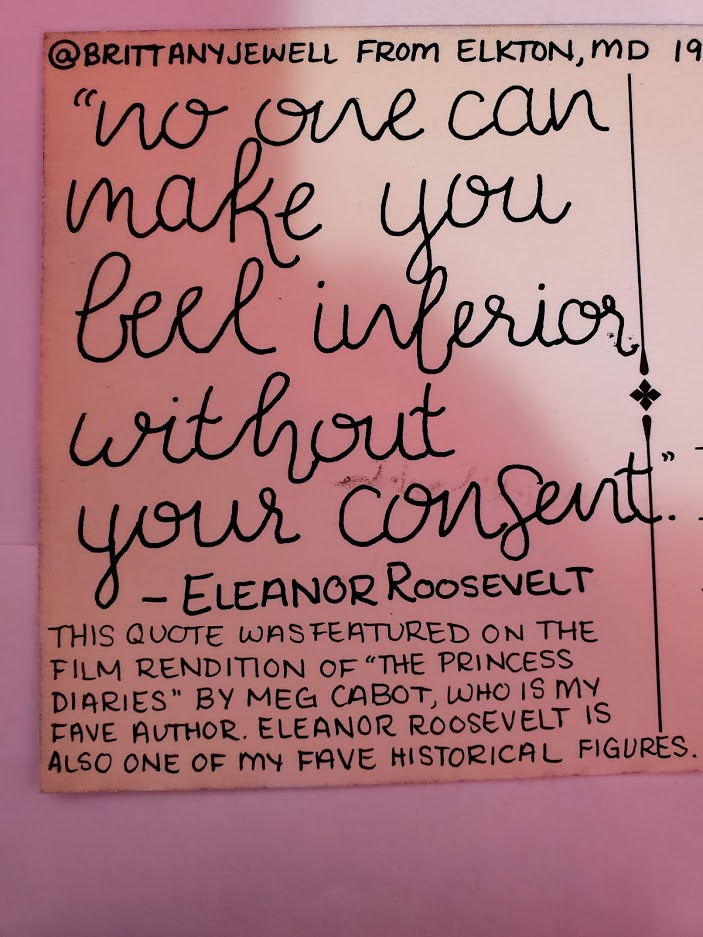 @BRITTANYJEWELL FROM ELKTON, MD 19
"no one can
make you
feel inferior
without
your consent".
- ELEANOR ROOSEVELT
THIS QUOTE WAS FEATURED ON THE
FILM RENDITION OF "THE PRINCESS
DIARIES" BY MEG CABOT, WHO IS MY
FAVE AUTHOR. ELEANOR ROOSEVELT IS
ALSO ONE OF MY FAVE HISTORICAL FIGURES.